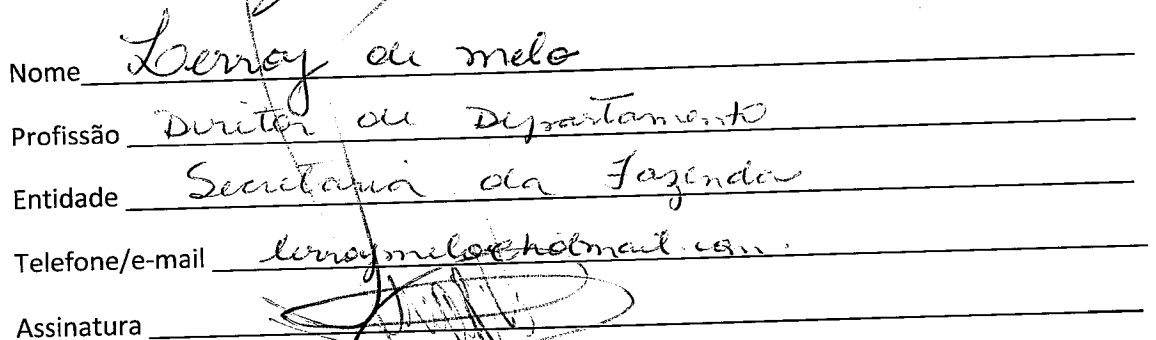 Nome Lerroy de melo
Profissão Diretor de Departamento
Entidade Secretaria da Fazenda
Telefone/e-mail lerroymelo@hotmail.com.
Assinatura